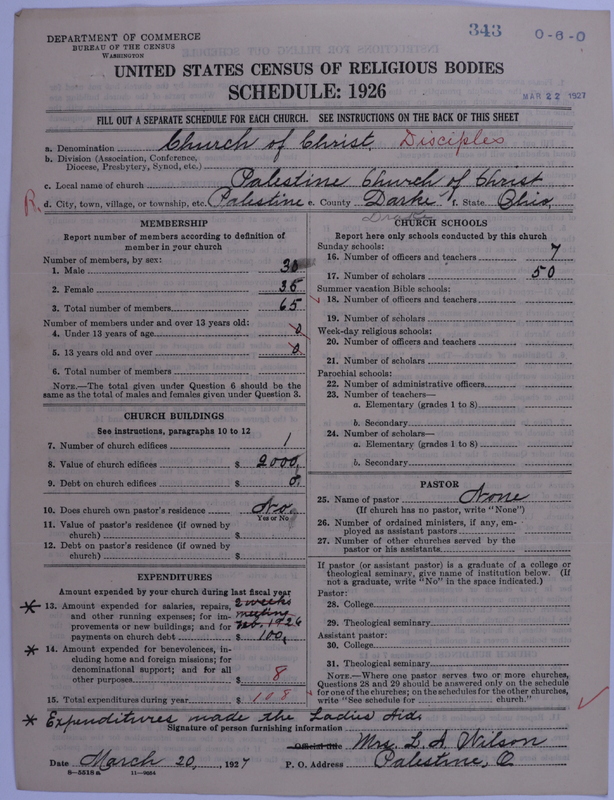 343 0-6-0
DEPARTMENT OF COMMERCE
BUREAU OF THE CENSUS
WASHINGTON
MAR 22 1927
UNITED STATES CENSUS OF RELIGIOUS BODIES
SCHEDULE: 1926
FILL OUT A SEPARATE SCHEDULE FOR EACH CHURCH. SEE INSTRUCTIONS ON THE BACK OF THIS SHEET
a. Denomination Church of Christ, Disciples
b. Division (Association, Conference, Diocese, Presbytery, Synod, etc.)
c. Local name of church Palestine Church of Christ
R. d. City, town, village, or township, etc. Palestine e. County Darke f. State Ohio
Drake
MEMBERSHIP
Report number of members according to definition of
member in your church
Number of members, by sex:
1. Male 30
2. Female 35
3. Total number of members 65
Number of members under and over 13 years old:
4. Under 13 years of age 0
5. 13 years old and over 0
6. Total number of members
NOTE.—The total given under Question 6 should be the
same as the total of males and females given under Question 3.
CHURCH BUILDINGS
See instructions, paragraphs 10 to 12
7. Number of church edifices 1
8. Value of church edifices $ 2000
9. Debt on church edifices $ 0
10. Does church own pastor's residence No
Yes or No
11. Value of pastor's residence (if owned by
church) $
12. Debt on pastor's residence (if owned by
church) $
EXPENDITURES
Amount expended by your church during last fiscal year
* 13. Amount expended for salaries, repairs, 2 weeks
and other running expenses; for im- meeting
provements or new buildings; and for no. 1926
payments on church debt $ 100
* 14. Amount expended for benevolences, in-
cluding home and foreign missions; for
denominational support; and for all
other purposes $ 8
15. Total expenditures during year $ 108
CHURCH SCHOOLS
Report here only schools conducted by this church
Sunday schools:
16. Number of officers and teachers 7
17. Number of scholars 50
Summer vacation Bible schools:
18. Number of officers and teachers
19. Number of scholars
Week-day religious schools:
20. Number of officers and teachers
21. Number of scholars
Parochial schools:
22. Number of administrative officers
23. Number of teachers—
a. Elementary (grades 1 to 8)
b. Secondary
24. Number of scholars—
a. Elementary (grades 1 to 8)
b. Secondary
PASTOR
25. Name of pastor None
(If church has no pastor, write "None")
26. Number of ordained ministers, if any, em-
ployed as assistant pastors
27. Number of other churches served by the
pastor or his assistants
If pastor (or assistant pastor) is a graduate of a college or
theological seminary, give name of institution below. (If
not a graduate, write "No" in the space indicated.)
Pastor:
28. College
29. Theological seminary
Assistant pastor:
30. College
31. Theological seminary
NOTE.—Where one pastor serves two or more churches,
Questions 28 and 29 should be answered only on the schedule
for one of the churches; on the schedules for the other churches,
write "See schedule for church."
* Expenditures made the Ladies Aid.
Signature of person furnishing information
Official title Mrs. L. A. Wilson
Date March 20, 1927 P. O. Address Palestine, O
8—5518a 11—9064